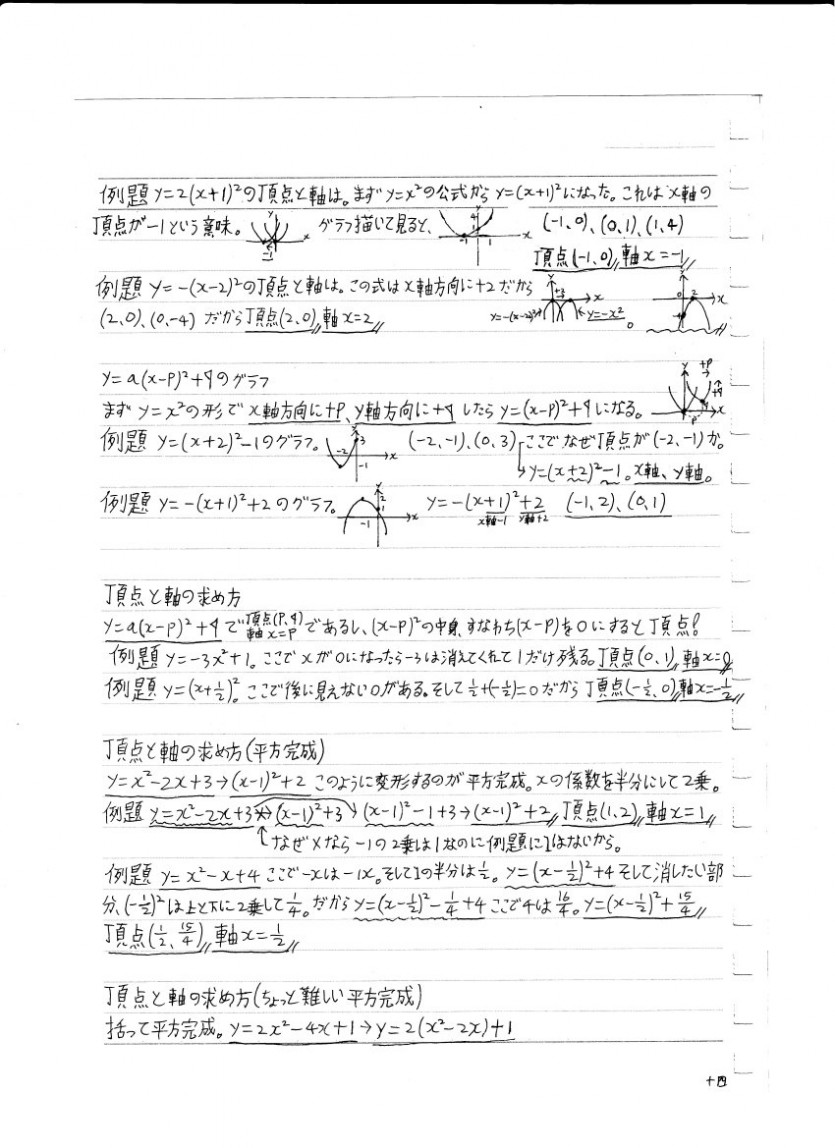 例題 y=2(x+1)²の頂点と軸は。まず y=x²の公式から y=(x+1)²になった。これは x軸の
頂点が-1という意味。 グラフ描いて見ると、 (-1,0)、(0,1)、(1,4)
頂点(-1,0)〃軸x=-1〃
例題 y=-(x-2)²の頂点と軸は。この式は x軸方向に+2だから
(2,0)、(0,-4) だから頂点(2,0)〃軸x=2〃 y=-(x-2)² y=-x²
y=a(x-p)²+qのグラフ
まず y=x²の形で x軸方向に+p、y軸方向に+q したら y=(x-p)²+qになる。
例題 y=(x+2)²-1のグラフ。 (-2,-1)、(0,3) ここでなぜ頂点が(-2,-1)か。
→y=(x+2)²-1。x軸、y軸。
例題 y=-(x+1)²+2のグラフ。 y=-(x+1)²+2 (-1,2)、(0,1)
x軸-1 y軸+2
頂点と軸の求め方
y=a(x-p)²+qで頂点(p,q) 軸x=pであるし、(x-p)²の中身、すなわち(x-p)を0にすると頂点!
例題 y=-3x²+1。ここでxが0になったら-3は消えてくれて1だけ残る。頂点(0,1)〃軸x=0〃
例題 y=(x+½)²。ここで後に見えない0がある。そして½+(-½)=0だから頂点(-½,0)〃軸x=-½〃
頂点と軸の求め方(平方完成)
y=x²-2x+3→(x-1)²+2 このように変形するのが平方完成。xの係数を半分にして2乗。
例題 y=x²-2x+3→(x-1)²+3→(x-1)²-1+3→(x-1)²+2〃頂点(1,2)〃軸x=1〃
なぜ×なら-1の2乗は1なのに例題に1はないから。
例題 y=x²-x+4 ここで-xは-1x。そして1の半分は½。y=(x-½)²+4 そして消したい部
分、(-½)²は上と下に2乗して¼。だから y=(x-½)²-¼+4 ここで4は16/4。y=(x-½)²+15/4〃
頂点(½、15/4)〃軸x=½〃
頂点と軸の求め方(ちょっと難しい平方完成)
括って平方完成。y=2x²-4x+1→y=2(x²-2x)+1
十四